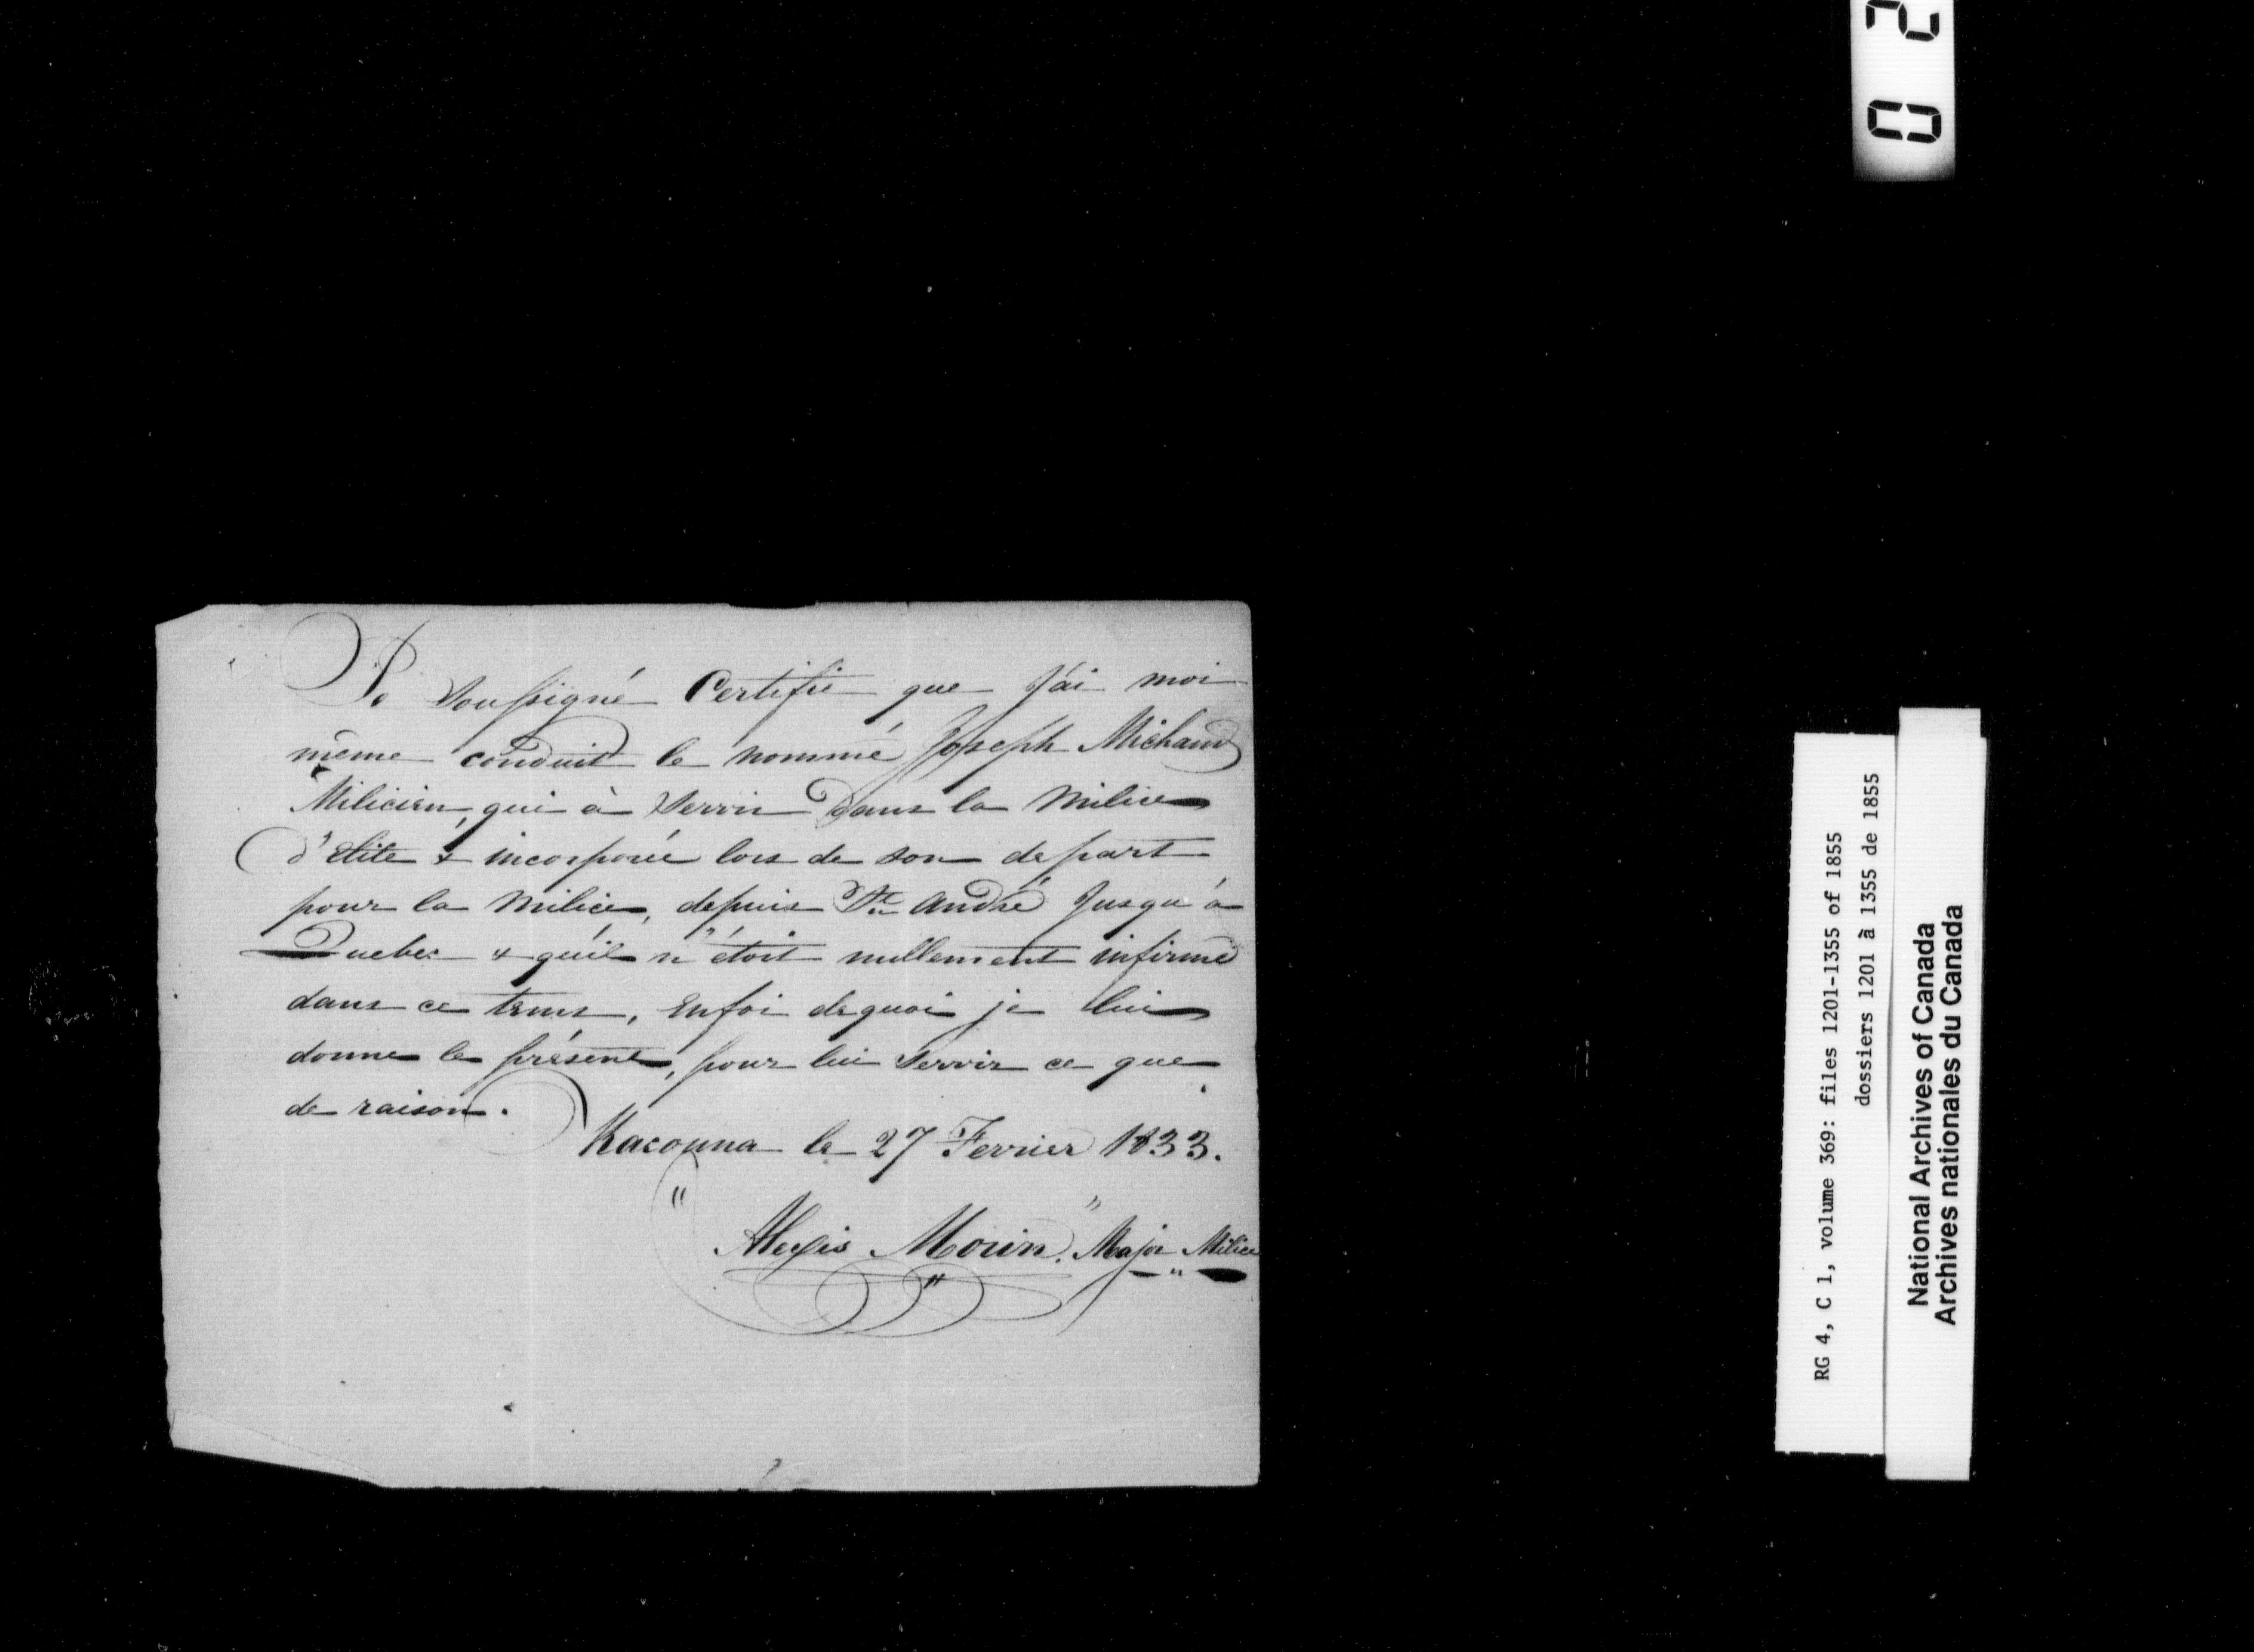 Je Soussigné Certifie que J'ai moi
même conduit le nommé Joseph Michaud
Milicien, qui à Servir dans la Milice
d'Elite & incorporée lors de son depart
pour la Milice, depuis St André Jusqu'à
Quebec & qu'il n'étoit nullement infirme
dans ce tems, Enfoi dequoi je lui
donne le présent, pour lui Servir ce que
de raison.
Kacouna le 27 Fevrier 1833.
"Alexis Morin." Major Milice
0 2
RG 4, C 1, volume 369: files 1201-1355 of 1855
dossiers 1201 à 1355 de 1855
National Archives of Canada
Archives nationales du Canada